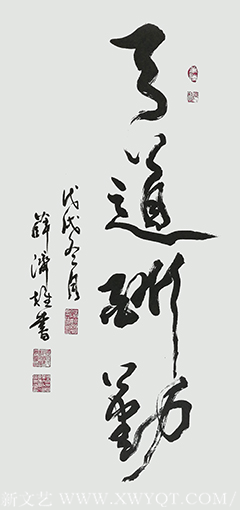 天道酬勤
戊戌冬月
薛济雄書
新文艺 WWW.XWYQT.COM/